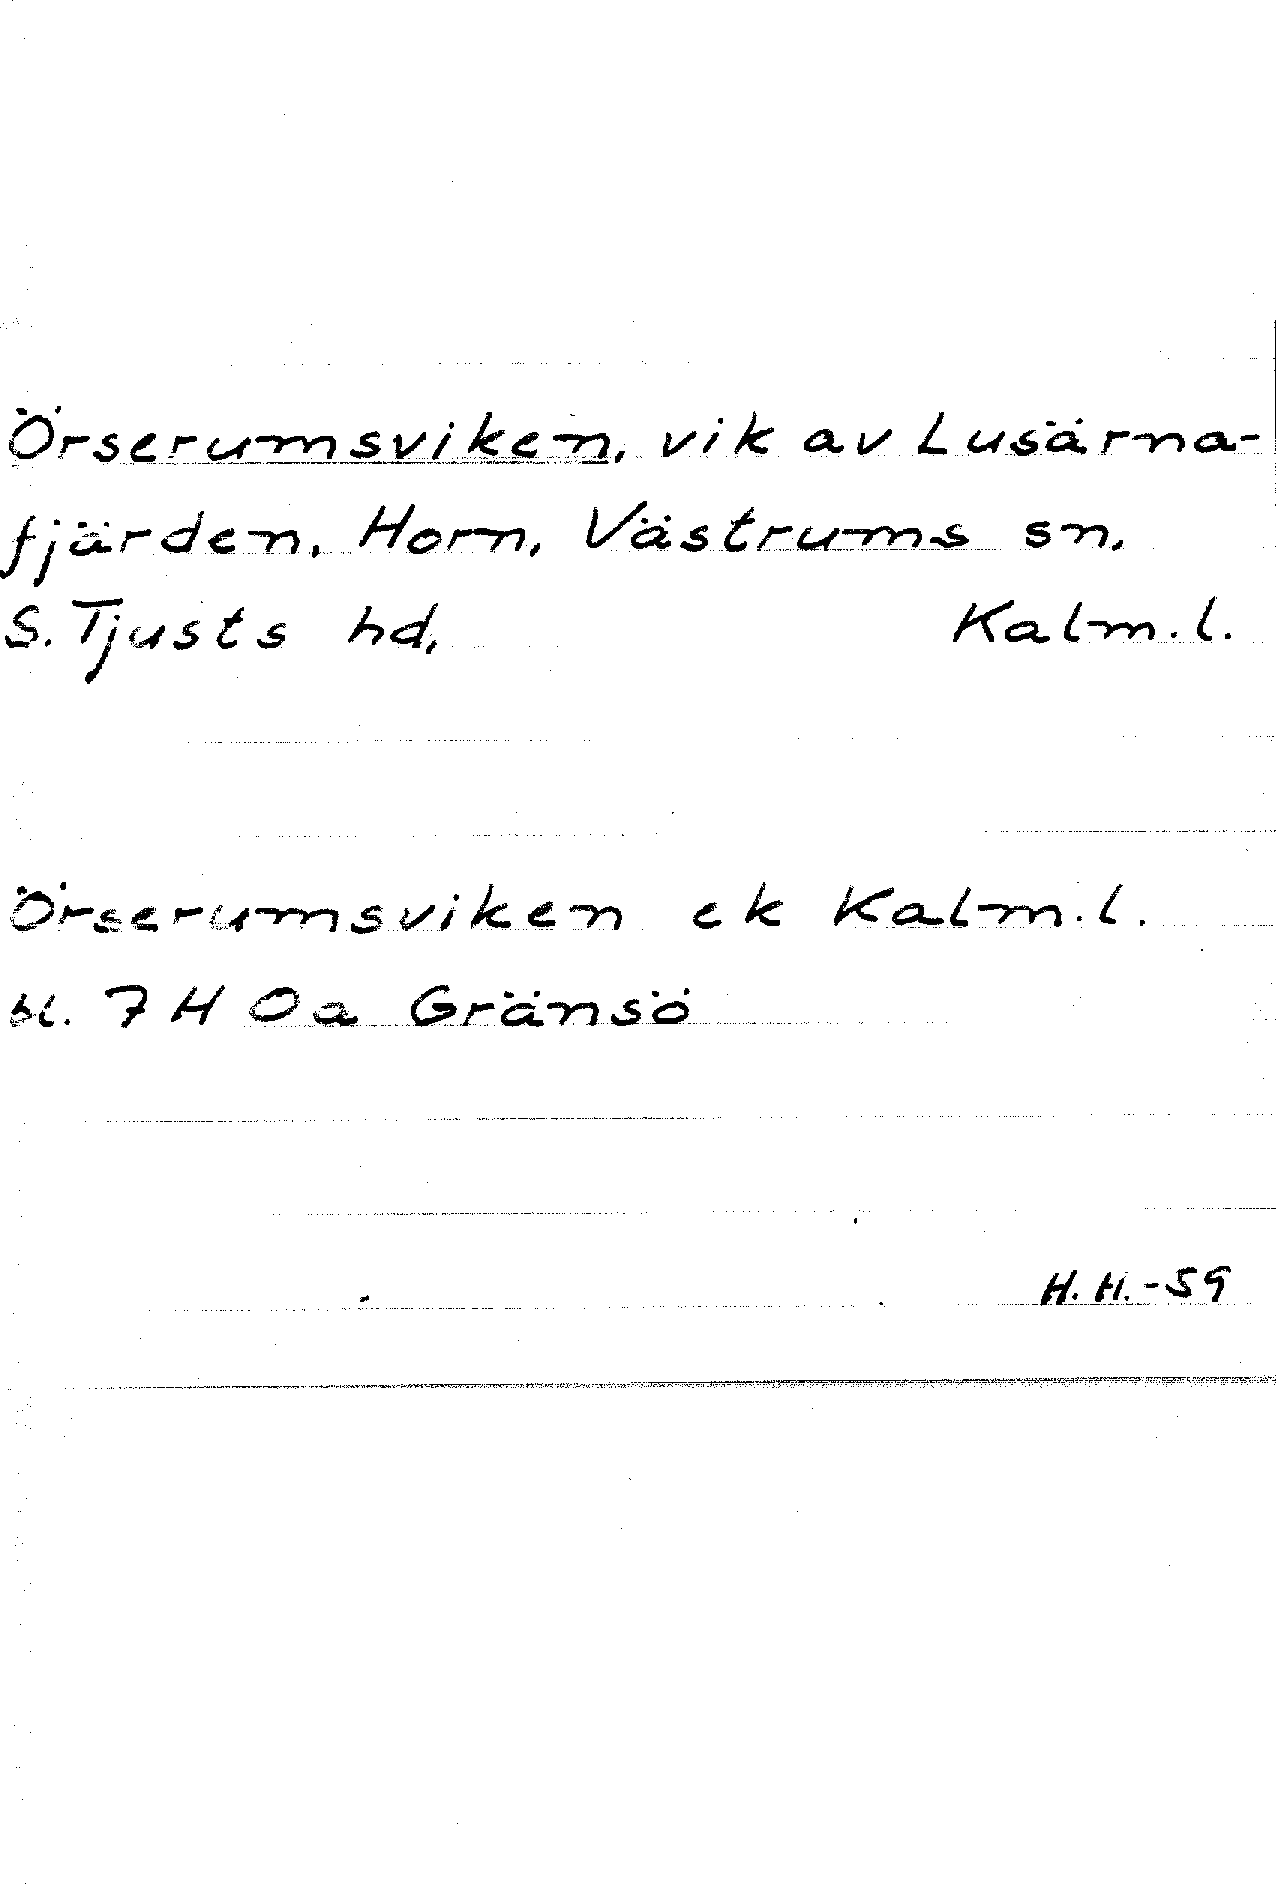 Örserumsviken, vik av Lusärna-
fjärden, Horn, Västrums sn,
S. Tjusts hd, Kalm.l.
Örserumsviken ek Kalm.l.
bl. 7 H 0a Gränsö
H.H.-59